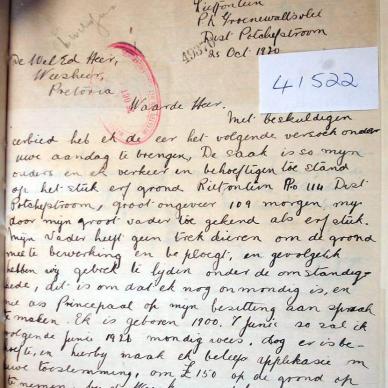 Rietfontein
P.K. Groenewaltsvlei
Dist Potchefstroom
25 Oct 1920
De Wel Ed Heer,
Weesheer,
Pretoria
41522
Waarde Heer.
Met beskuldigen
eerbied heb ek de eer het volgende versoek onder
uwe aandag te brengen, De saak is so myn
ouders en ek verkeer en behoeftigen toe stand
op het stuk erf grond Rietfontein No 114 Dist
Potchefstroom, groot ongeveer 109 morgen, my
door myn groot vader toe gekend als erf stuk.
myn Vader heeft geen trek dieren om de grond
mee te bewerking en be ploegt, en gevolglik
hebben wy gebrek te lyden onder de omstandig-
hede, dit is om dat ek nog onmondig is, en
nie as Princepaal op myn besetting aan spraak
te maken. Ek is geboren 1900. 7 Junie so sal ik
volgende Junie 1921 mondig wees, dog er is be-
hoefte, en hierby maak ek beleef applikasie in
uwe toestemming, om £150 op de grond op
te nemen,